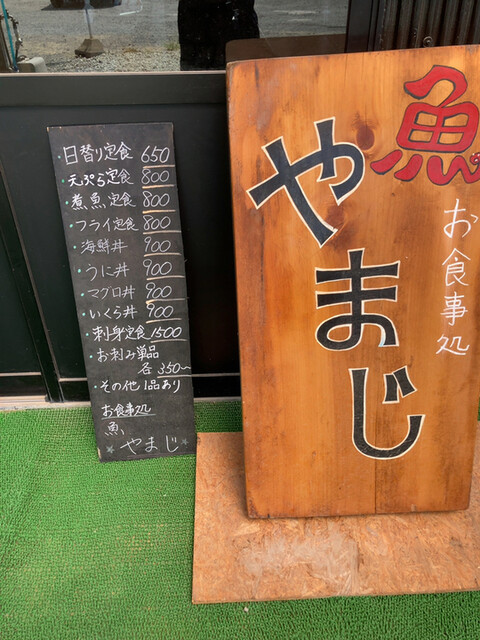 ・日替り定食 650
・天ぷら定食 800
・煮魚定食 800
・フライ定食 800
・海鮮丼 900
・うに丼 900
・マグロ丼 900
・いくら丼 900
・刺身定食 1500
・お刺み単品
各 350〜
・その他1品あり
お食事処
魚、
やまじ
魚
お食事処
やまじ